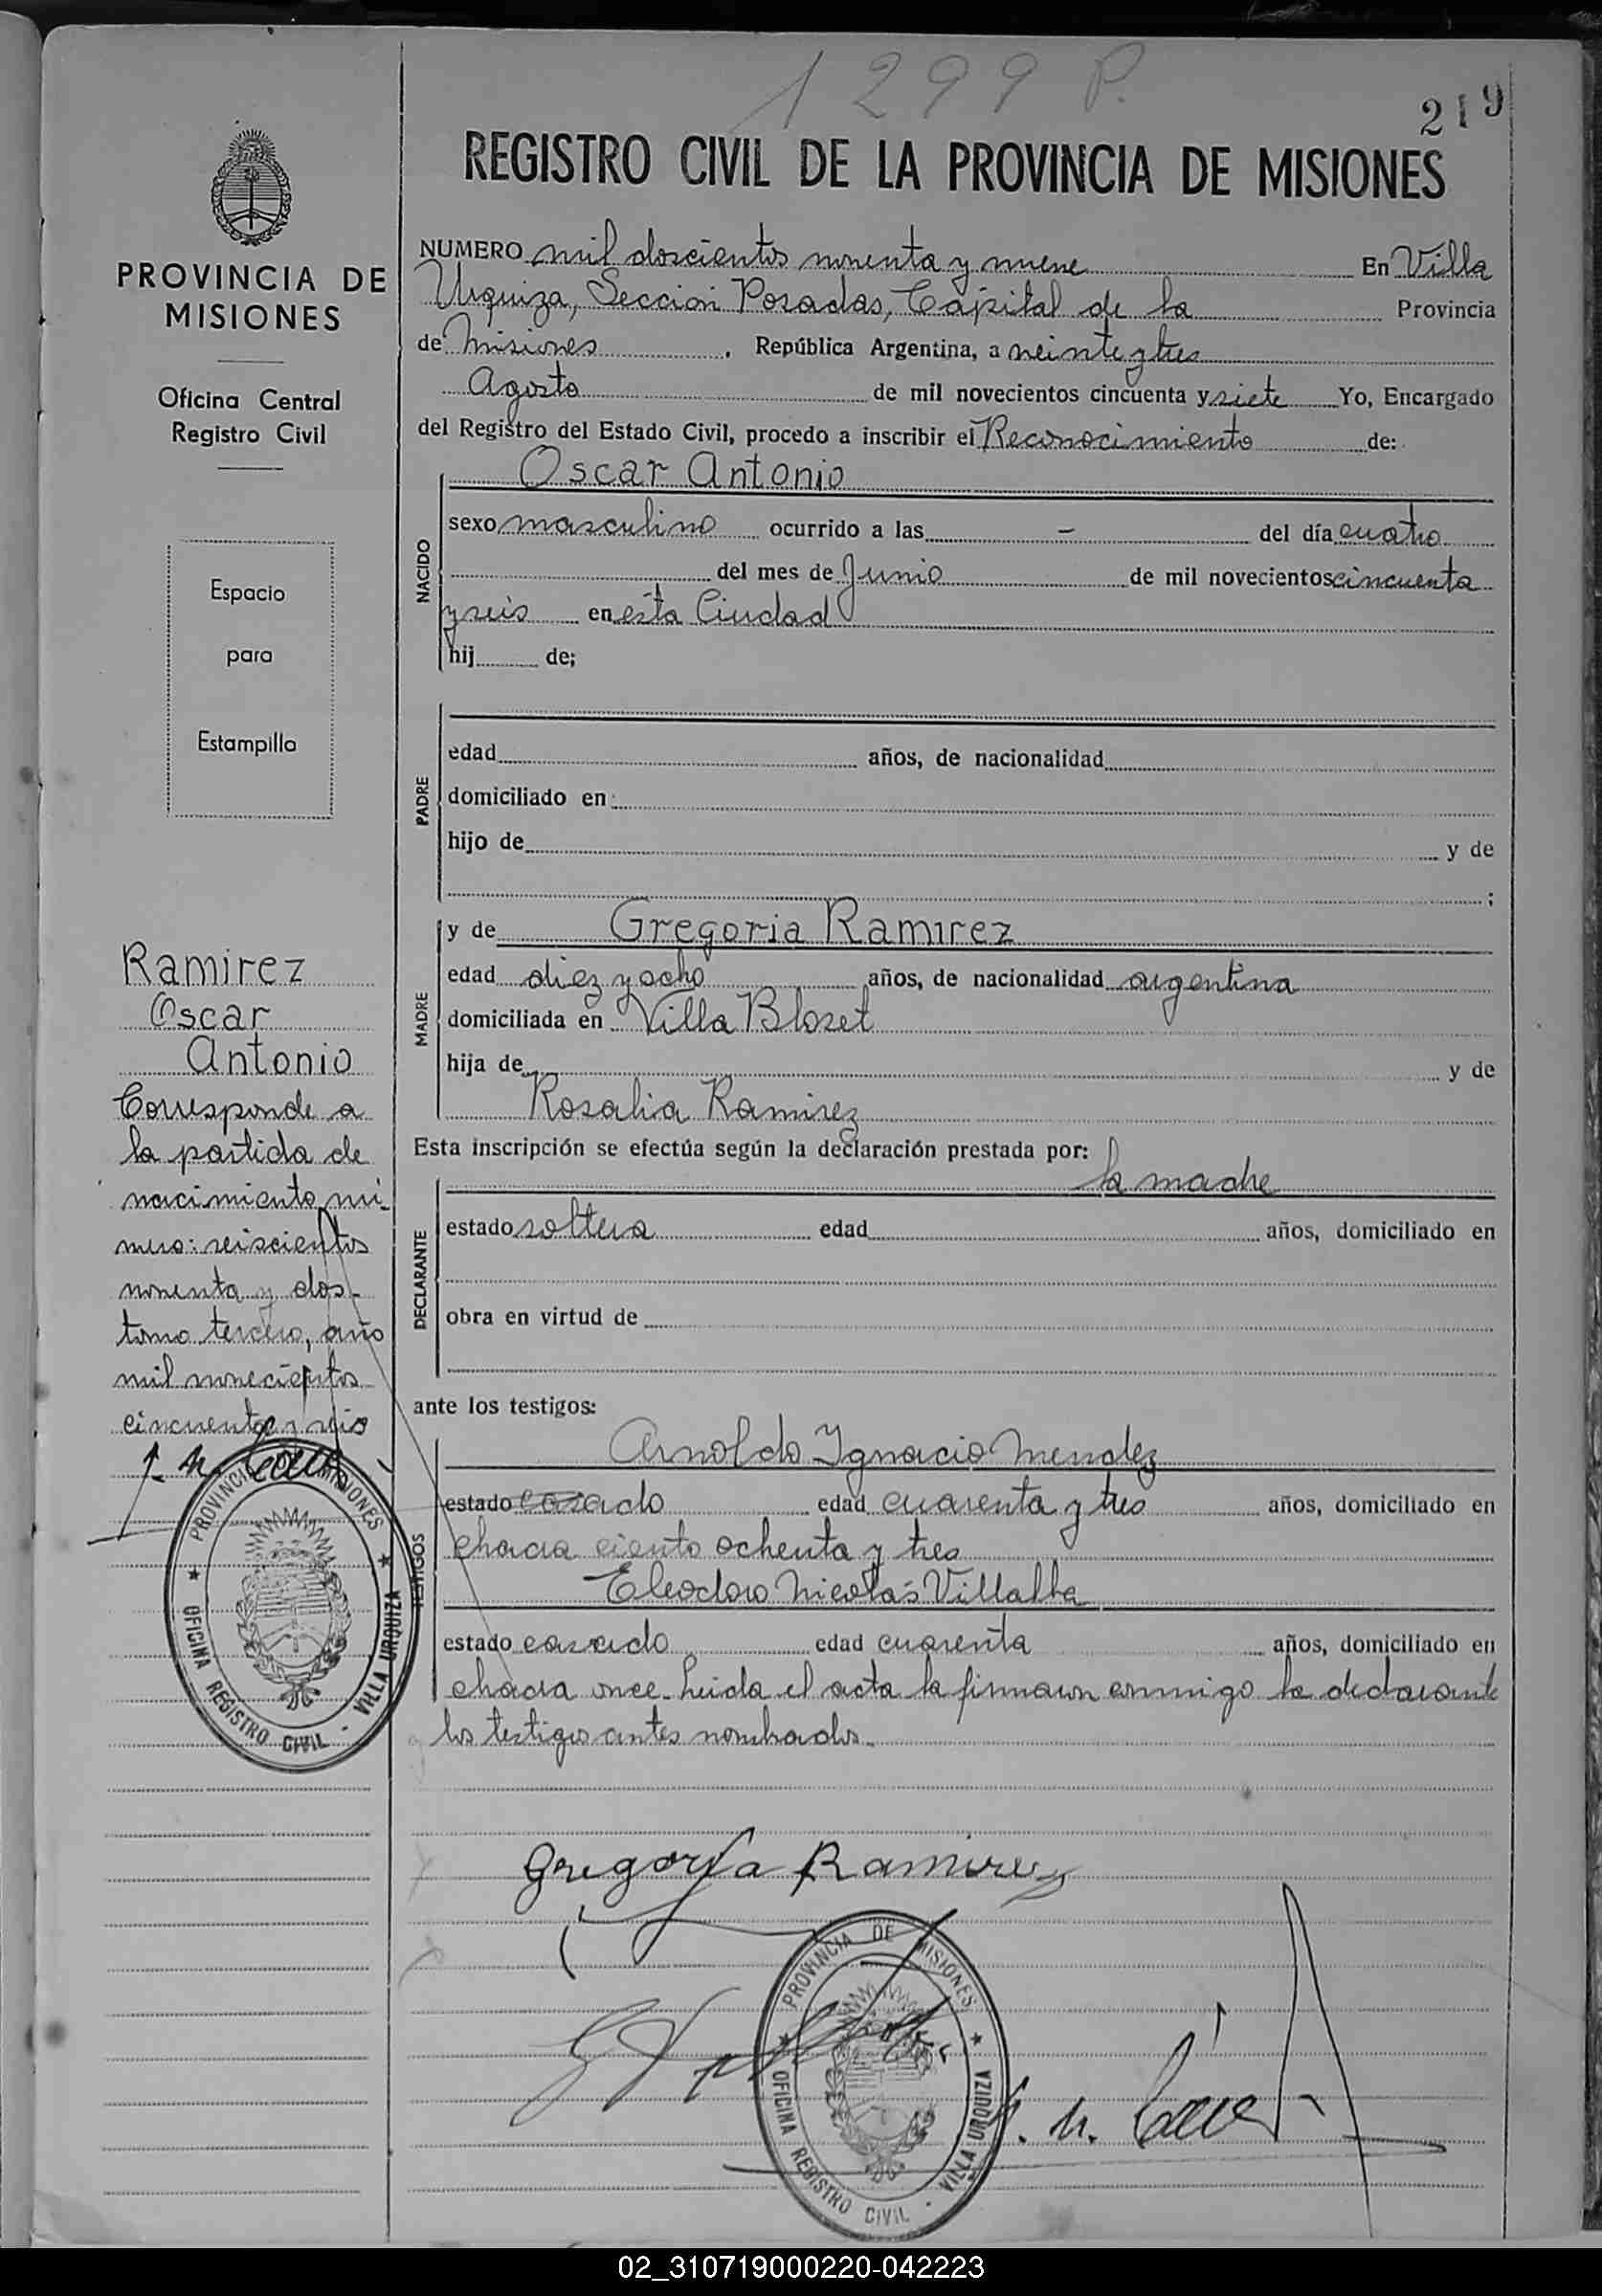 1299 P.
219
REGISTRO CIVIL DE LA PROVINCIA DE MISIONES
PROVINCIA DE
MISIONES
Oficina Central
Registro Civil
Espacio
para
Estampilla
Ramirez
Oscar
Antonio
Corresponde a
la partida de
nacimiento nú-
mero: seiscientos
noventa y dos-
tomo tercero, año
mil novecientos
cincuenta y seis
PROVINCIA DE MISIONES
OFICINA REGISTRO CIVIL - VILLA URQUIZA
NUMERO mil doscientos noventa y nueve En Villa
Urquiza, Sección Posadas, Capital de la Provincia
de Misiones, República Argentina, a veinte y tres
Agosto de mil novecientos cincuenta y siete Yo, Encargado
del Registro del Estado Civil, procedo a inscribir el Reconocimiento de:
Oscar Antonio
NACIDO
sexo masculino ocurrido a las - del día cuatro
del mes de Junio de mil novecientos cincuenta
y seis en ésta Ciudad
hij de;
PADRE
edad años, de nacionalidad
domiciliado en
hijo de y de
;
MADRE
y de Gregoria Ramirez
edad diez y ocho años, de nacionalidad argentina
domiciliada en Villa Bloset
hija de y de
Rosalia Ramirez
Esta inscripción se efectúa según la declaración prestada por:
la madre
DECLARANTE
estado soltera edad años, domiciliado en
obra en virtud de
ante los testigos:
TESTIGOS
Arnoldo Ignacio Mendez
estado casado edad cuarenta y tres años, domiciliado en
chacra ciento ochenta y tres
Eleodoro Nicolás Villalba
estado casado edad cuarenta años, domiciliado en
chacra once. Leida el acta la firmaron conmigo la declarante
los testigos antes nombrados.
Gregoria Ramirez
PROVINCIA DE MISIONES
OFICINA REGISTRO CIVIL - VILLA URQUIZA
02_310719000220-042223